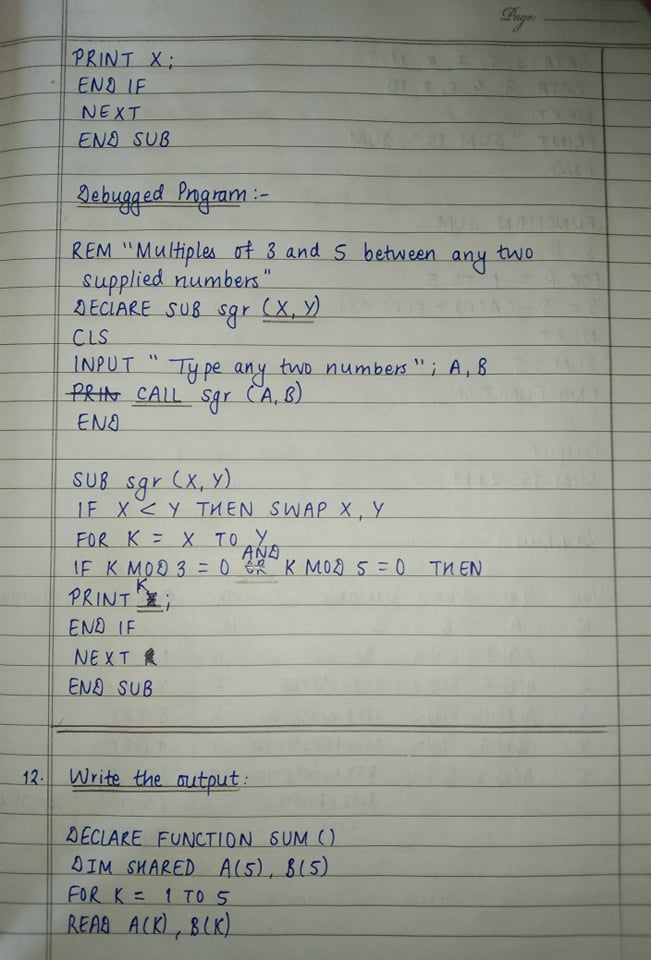 Page:
PRINT X;
END IF
NEXT
END SUB
Debugged Program :-
REM "Multiples of 3 and 5 between any two
supplied numbers"
DECLARE SUB sgr (X, Y)
CLS
INPUT " Type any two numbers" ; A, B
PRIN CALL sgr (A, B)
END
SUB sgr (X, Y)
IF X < Y THEN SWAP X, Y
FOR K = X TO Y
AND
IF K MOD 3 = 0 OR K MOD 5 = 0 THEN
PRINT K;
END IF
NEXT
END SUB
12. Write the output:
DECLARE FUNCTION SUM ()
DIM SHARED A(5), B(5)
FOR K = 1 TO 5
READ A(K), B(K)